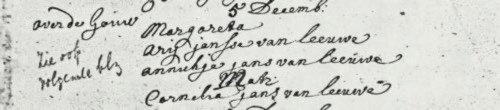 5 Decemb:
over de Gouw
Margareta
Zie ook
volgende blz
arij jansse van leeuwe
annichja jans van leeuwe
Mat:
Cornelia jans van leeuwe